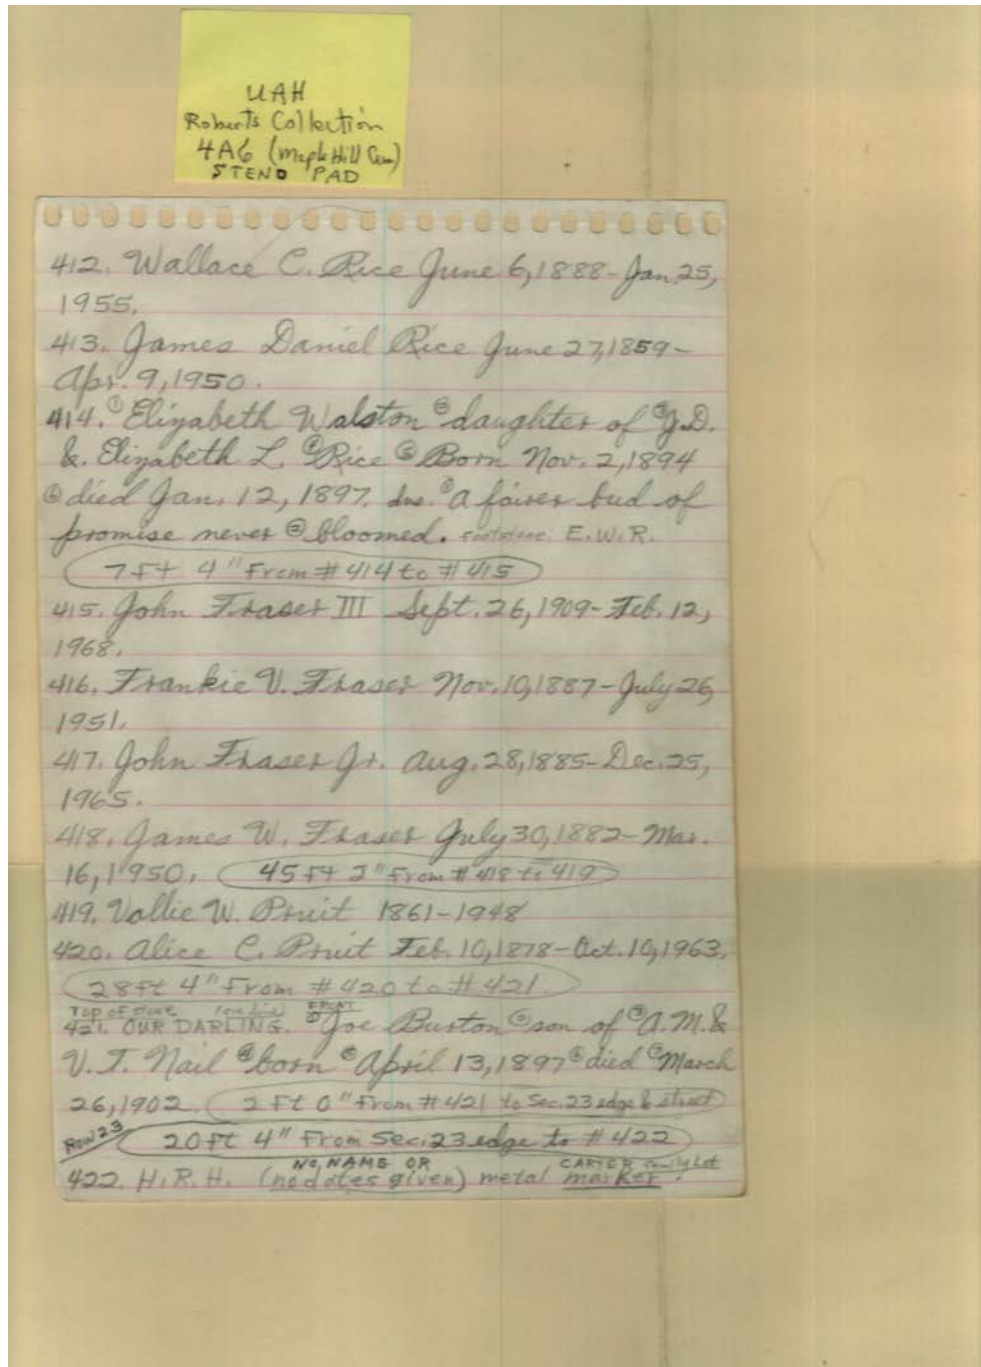 UAH
Roberts Collection
4A6 (Maple Hill Cem)
STENO PAD
412. Wallace C. Rice June 6, 1888-Jan. 25,
1955.
413. James Daniel Rice June 27, 1859-
Apr. 9, 1950.
414. ① Elizabeth Walston ② daughter of ③ J.D.
&. Elizabeth L. ④ Rice ⑤ Born Nov. 2, 1894
⑥ died Jan. 12, 1897. ins. a fairer bud of
promise never ⑧ bloomed. Footstone: E.W.R.
7 ft 4" From # 414 to # 415
415. John Fraser III Sept. 26, 1909-Feb. 12,
1968.
416. Frankie V. Fraser Nov. 10, 1887-July 26,
1951.
417. John Fraser Jr. Aug. 28, 1885-Dec. 25,
1965.
418. James W. Fraser July 30, 1882-Mar.
16, 1950. 45 ft 2" From # 418 to 419
419. Vallie W. Pruit 1861-1948
420. Alice C. Pruit Feb. 10, 1878-Oct. 10, 1963.
28 ft 4" From # 420 to # 421.
Top of stone FRONT
421. OUR DARLING. ① Joe Burton ② son of ③ A.M. &
V.T. Nail ④ born ⑤ April 13, 1897 ⑥ died ⑦ March
26, 1902. 2 ft 0" From # 421 to Sec. 23 edge & street
Row 23 20 ft 4" From Sec. 23 edge to # 422
NO NAME OR CARTER family Lot
422. H.R.H. (no dates given) metal marker